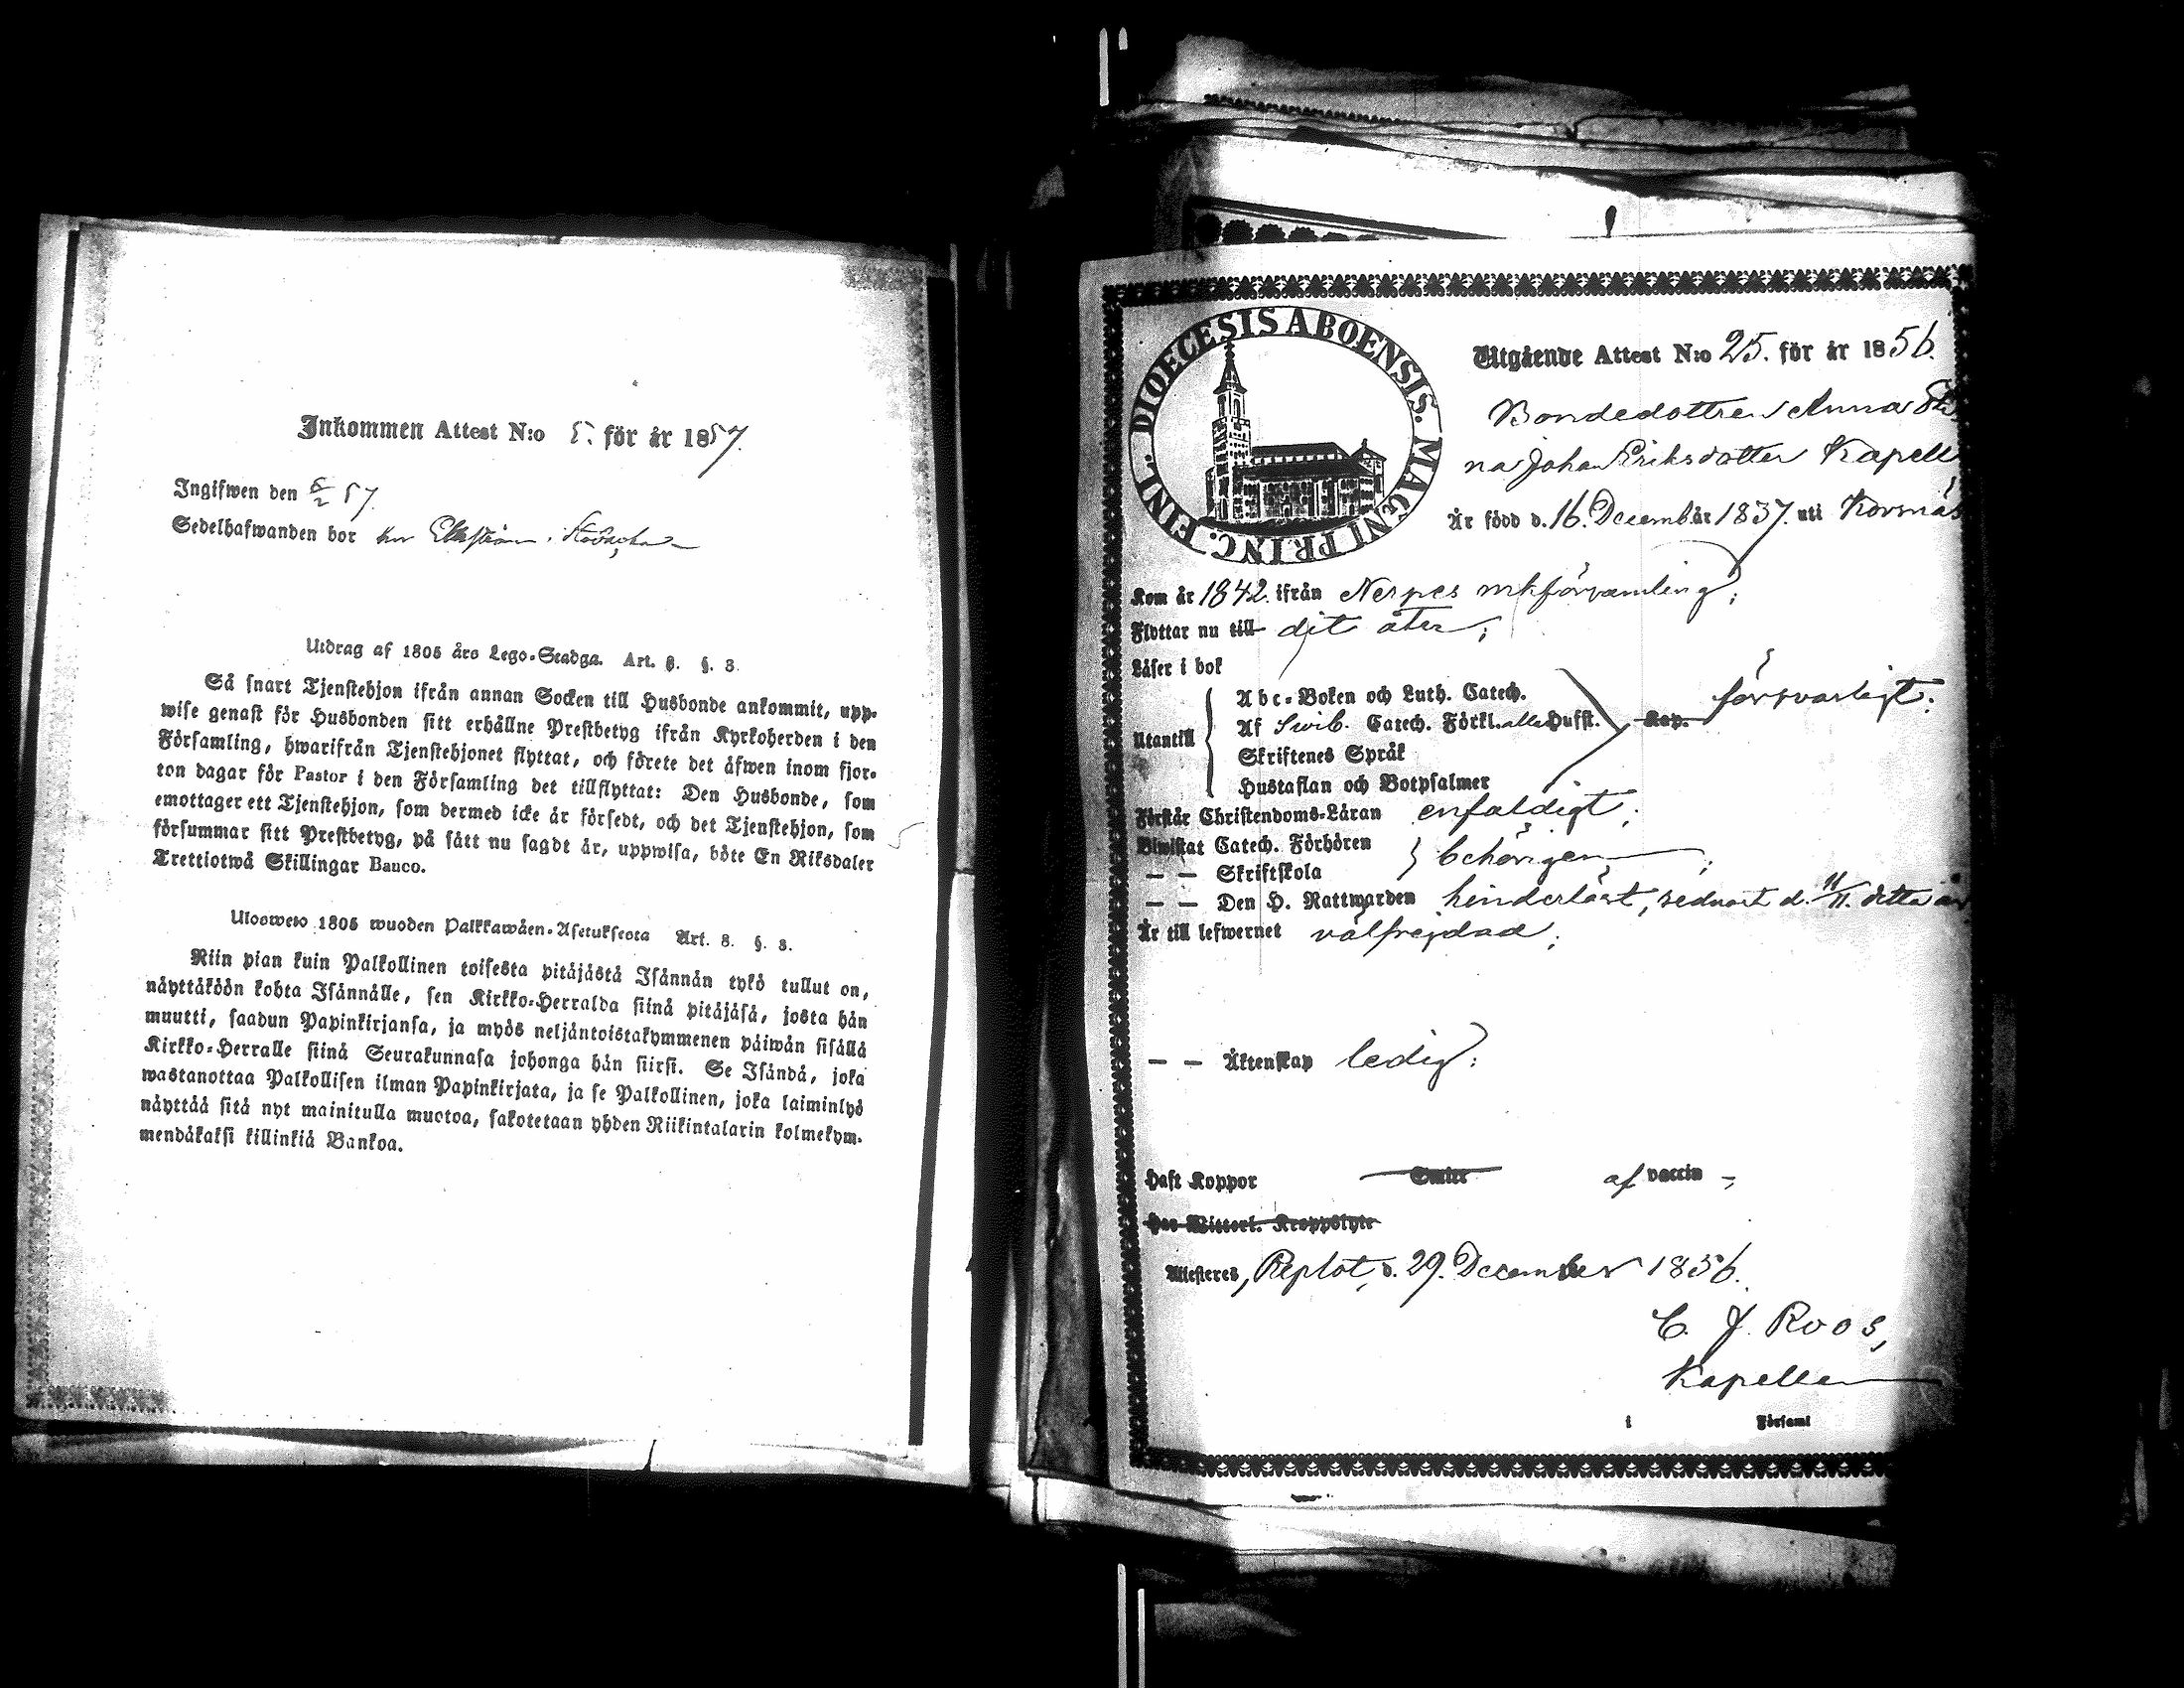 Inkommen Attest N:o 5. för år 1857.
Ingifwen den 5/2 57.
Sedelhafwanden bor
Utdrag af 1805 års Lego-Stadga. Art. 8. §. 3.
Så snart Tjenstehjon ifrån annan Socken till Husbonde ankommit, upp-
wise genast för Husbonden sitt erhållne Prestbetyg ifrån Kyrkoherden i den
Församling, hwarifrån Tjenstehjonet flyttat, och förete det åfwen inom fjor-
ton dagar för Pastor i den Församling det tillflyttat: Den Husbonde, som
emottager ett Tjenstehjon, som dermed icke är försedt, och det Tjenstehjon, som
försummar sitt Prestbetyg, på sätt nu sagdt är, uppwisa, böte En Riksdaler
Trettiotwå Skillingar Banco.
Ulosweto 1805 wuoden Palkkawäen-Asetuksesta Art. 8. §. 3.
Niin pian kuin Palkollinen toisesta pitäjästä Isännän tykö tullut on,
näyttäköön kohta Isännälle, sen Kirkko-Herralda siinä pitäjäsä, josta hän
muutti, saadun Papinkirjansa, ja myös neljäntoistakymmenen päiwän sisällä
Kirkko-Herralle siinä Seurakunnasa johonga hän siirsi. Se Isändä, joka
wastanottaa Palkollisen ilman Papinkirjata, ja se Palkollinen, joka laiminlyö
näyttää sitä nyt mainitulla muotoa, sakotetaan yhden Riikintalarin kolmekym-
mendäkaksi killinkiä Bankoa.
DIOECESIS ABOENSIS. MAGNI PRINC. FINL.
Utgående Attest N:o 25. för år 1856.
Bondedottren Anna
na Johan Eriksdotter Kapell
Är född d. 16. Decemb. år 1837. uti Korsnäs
Kom år 1842. ifrån Nerpes mkförsamling;
Flyttar nu till dit åter;
Läser i bok försvarligt:
Utantill
Abc-Boken och Luth. Catech.
Af Swib. Catech. Förkl. alla Hufst. Kap.
Skriftenes Språk
Hustaflan och Botpsalmer
Förstår Christendoms-Läran enfaldigt;
Biwistat Catech. Förhören } behörigen;
— — Skriftskola
— — Den H. Nattwarden hinderlöst, sednast d. 11/11. detta år
Är till lefwernet välfrejdad;
— — Äktenskap ledig:
Haft Koppor Smitt af vaccin
Har Witterl. Kroppslyte
Attesteres, Replot, d. 29. December 1856.
C. J. Roos,
Kapellan
i Församl